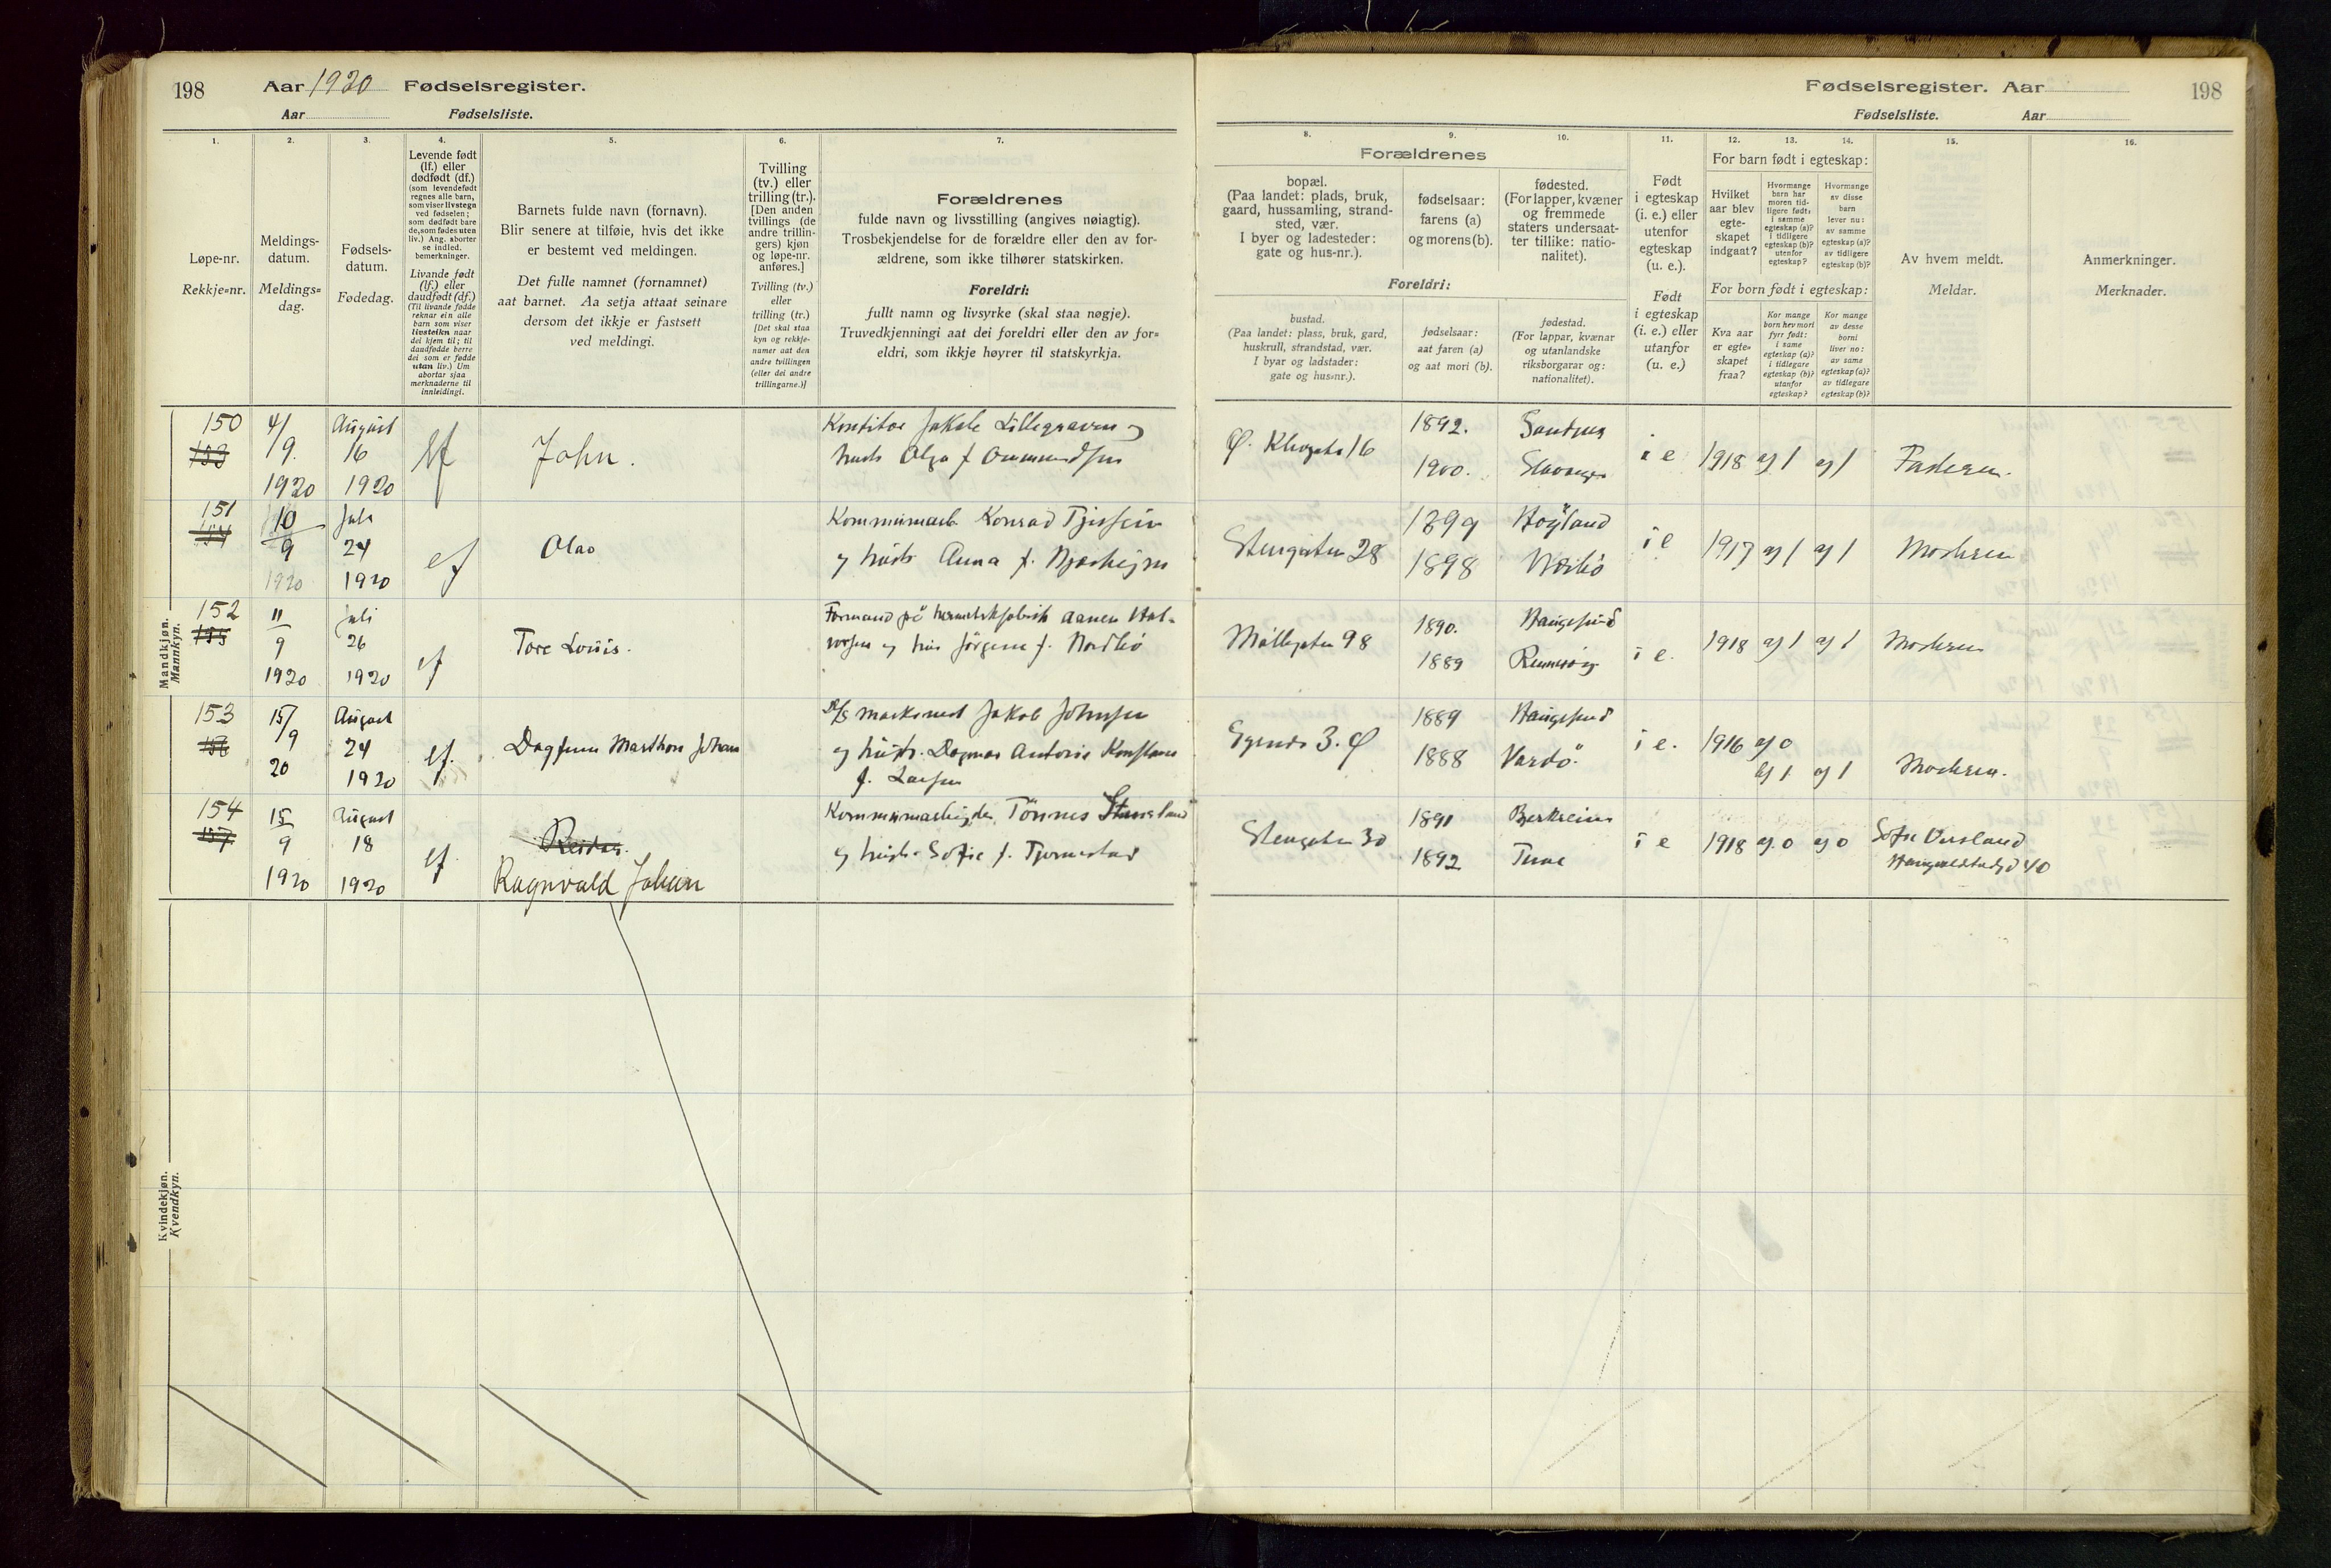 198
Aar 1920 Fødselsregister.
Aar Fødselsliste.
Fødselsregister. Aar
198
Fødselsliste. Aar
1.
Løpe-nr.
Rekkje=nr.
2.
Meldings-
datum.
Meldings=
dag.
3.
Fødsels-
datum.
Fødedag.
4.
Levende født
(lf.) eller
dødfødt (df.)
(som levendefødt
regnes alle barn,
som viser livstegn
ved fødselen;
som dødfødt bare
de, som fødes uten
liv.) Ang. aborter
se indled.
bemerkninger.
Livande født
(lf.) eller
daudfødt (df.)
(Til livande fødde
reknar ein alle
barn som viser
livsteikn naar
dei kjem til; til
daudfødde berre
dei som er fødde
utan liv.) Um
abortar sjaa
merknaderne til
innleidingi.
5.
Barnets fulde navn (fornavn).
Blir senere at tilføie, hvis det ikke
er bestemt ved meldingen.
Det fulle namnet (fornamnet)
aat barnet. Aa setja attaat seinare
dersom det ikkje er fastsett
ved meldingi.
6.
Tvilling
(tv.) eller
trilling (tr.).
[Den anden
tvillings (de
andre trillin-
gers) kjøn
og løpe-nr.
anføres.]
Tvilling (tv.)
eller
trilling (tr.)
[Det skal staa
kyn og rekkje-
numer aat den
andre tvillingen
(eller dei andre
trillingarne.)]
7.
Forældrenes
fulde navn og livsstilling (angives nøiagtig).
Trosbekjendelse for de forældre eller den av for-
ældrene, som ikke tilhører statskirken.
Foreldri:
fullt namn og livsyrke (skal staa nøgje).
Truvedkjenningi aat dei foreldri eller den av for=
eldri, som ikkje høyrer til statskyrkja.
8. 9. 10.
Forældrenes
bopæl.
(Paa landet: plads, bruk,
gaard, hussamling, strand-
sted, vær.
I byer og ladesteder:
gate og hus-nr.).
fødselsaar:
farens (a)
og morens (b).
fødested.
(For lapper, kvæner
og fremmede
staters undersaat-
ter tillike: natio-
nalitet).
Foreldri:
bustad.
(Paa landet: plass, bruk, gard,
huskrull, strandstad, vær.
I byar og ladstader:
gate og hus=nr.).
fødselsaar:
aat faren (a)
og aat mori (b).
fødestad.
(For lappar, kvænar
og utanlandske
riksborgarar og:
nationalitet).
11.
Født
i egteskap
(i. e.) eller
utenfor
egteskap
(u. e.).
Født
i egteskap
(i. e.) eller
utanfor
(u. e.)
12. 13. 14.
For barn født i egteskap:
Hvilket
aar blev
egte-
skapet
indgaat?
Hvormange
barn har
moren tid-
ligere født:
i samme
egteskap (a)?
i tidligere
egteskap (b)?
utenfor
egteskap?
Hvormange
av disse
barn
lever nu:
av samme
egteskap (a)?
av tidligere
egteskap (b)?
For born født i egteskap:
Kva aar
er egte-
skapet
fraa?
Kor mange
born hev mori
fyrr født:
i same
egteskap (a)?
i tidlegare
egteskap (b)?
utanfor
egteskap?
Kor mange
av desse
borni
liver no:
av same
egteskap (a)?
av tidlegare
egteskap (b)?
15.
Av hvem meldt.
Meldar.
16.
Anmerkninger.
Merknader.
Mandkjøn.
Mannkyn.
150
153
4/9. 1920
August 16 1920
lf
John.
Jakob Lillegraven og
hustr Olga f. Ommundsen
1892.
1900.
Stavanger
i e
1918
a) 1
a) 1
Faderen.
151
154
10/9 1920
Juli 24 1920
lf
Olav
Konrad
og hustr Anna f.
Stengaten 28
1899
1898
Høyland
Nærbø
i e
1917
a) 1
a) 1
Moderen
152
155
11/9 1920
Juli 26 1920
lf
Tore Louis.
Formand på hermetikfabrik Aanen Hal-
vorsen og hus Jørgine f. Nordbø
Møllegaten 98
1890.
1889
Haugesund
Rennesøy
i e.
1918
a) 1
a) 1
Moderen
153
156
15/9 20
August 24 1920
lf.
Dagfinn Marthon Johan
Jakob Johnsen
og hustr. Dagmar Antonie Konstanse
f. Larsen
3. Ø
1889
1888
Haugesund
Vardø.
i e.
1916
a) 0
b) 1
a) 1
Moderen.
154
157
15/9 1920
August 18 1920
lf
Reidar.
Ragnvald Johan
Kommunearbeider Tønnes
og hustr. Sofie f.
Stengaten 30
1891
1892
Bjerkreim
Time
i e
1918
a) 0
a) 0
Sofie
40
Kvindekjøn.
Kvendkyn.